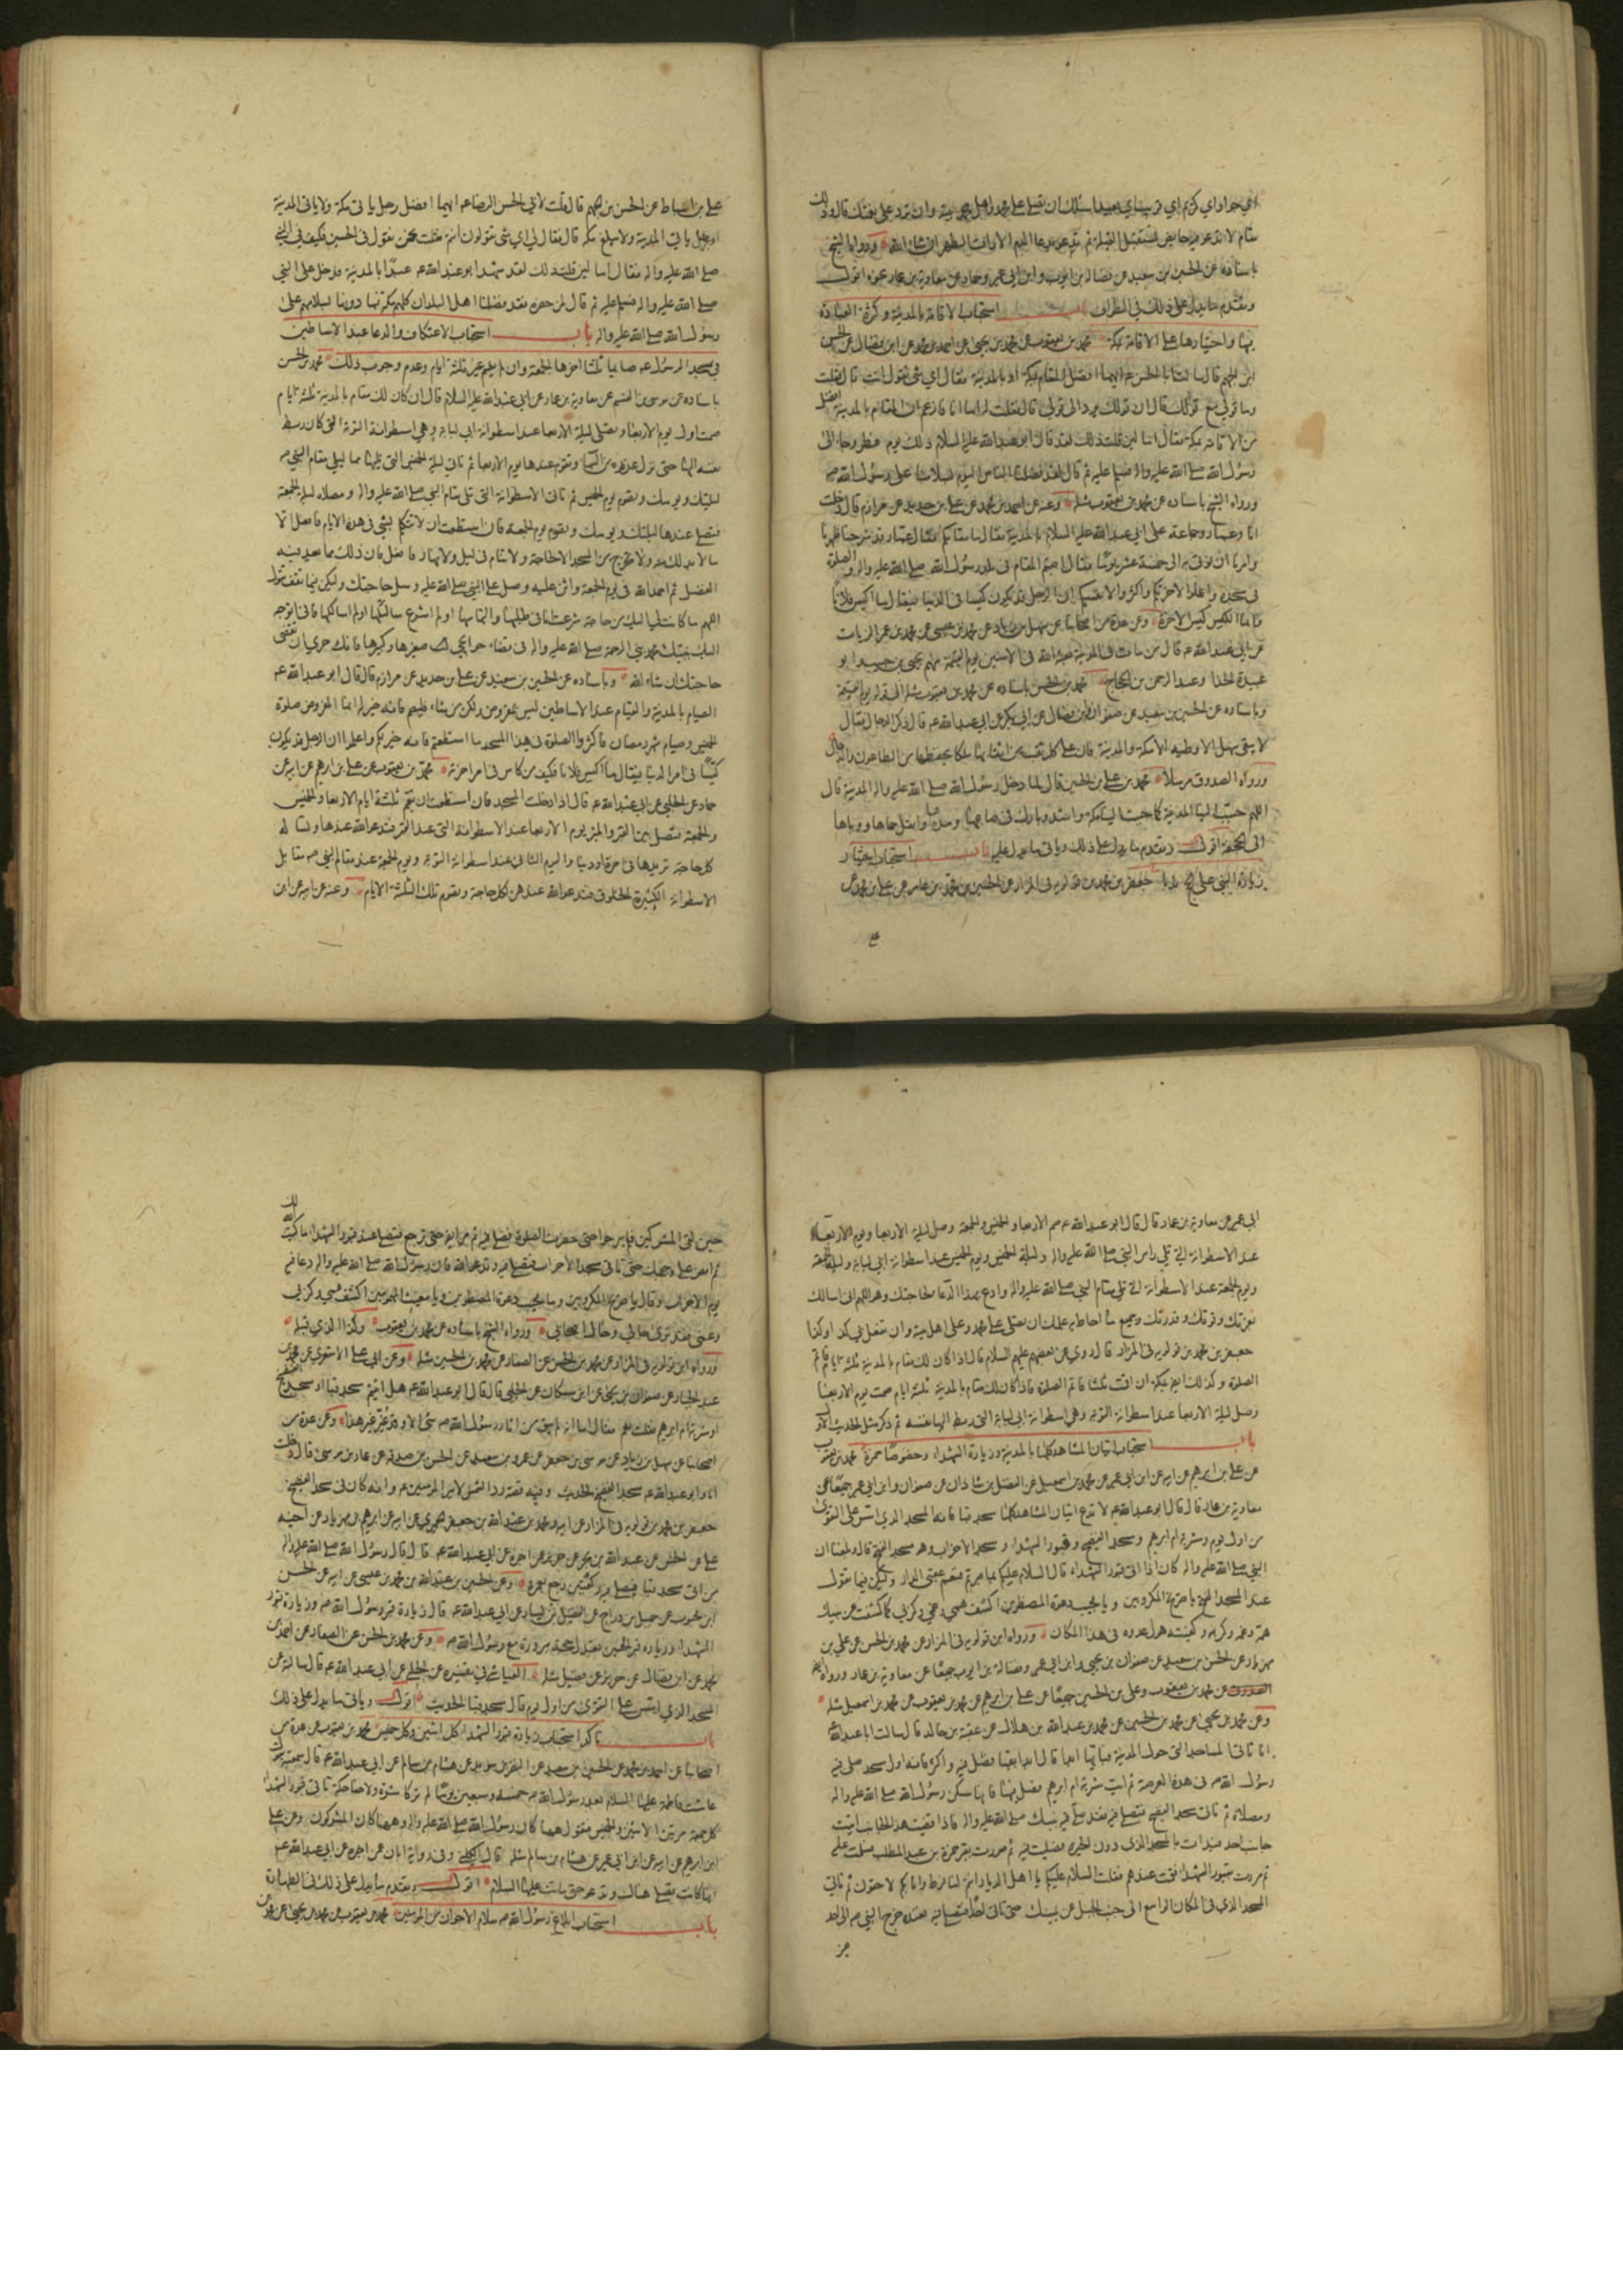 اي جواد اي كريم اي قريب اي بعيد اسئلك ان تصلي على محمد واهل بيته وان ترد علي نعمتك قال وذلك
مقام لا تدعو فيه حايض تستقبل القبلة ثم تدعو بدعاء الدم الا رات الطهر ان شاء الله ورواه الشيخ
باسناده عن الحسين بن سعيد عن فضالة بن ايوب وابن ابي عمير وحماد عن معاوية بن عمار نحوه اقول
وتقدم ما يدل على ذلك في الطواف باب استحباب الاقامة بالمدينة وكثرة العبادة
بها واختيارها على الاقامة بمكة محمد بن يعقوب عن محمد بن يحيى عن احمد بن محمد عن ابن فضال عن الحسن
ابن الجهم قال سالت ابا الحسن ع ايهما افضل المقام بمكة او بالمدينة فقال اي شي تقول انت قال فقلت
وما قولي مع قولك قال ان قولك يرد الى قولي قال فقلت له اما انا فازعم ان المقام بالمدينة افضل
من الاقامة بمكة فقال اما لئن قلت ذلك لقد قال ابو عبد الله عليه السلام ذلك يوم فطر وجاء الى
رسول الله صلى الله عليه واله فسلم عليه ثم قال لقد فضلنا الناس اليوم بسلامنا على رسول الله ص
ورواه الشيخ باسناده عن محمد بن يعقوب مثله وعنه عن احمد بن محمد عن علي بن حديد عن مرازم قال دخلت
انا وعمار وجماعة على ابي عبد الله عليه السلام بالمدينة فقال ما مقامكم فقال عمار قد سرحنا ظهرنا
وامرنا ان نوتى به الى خمسة عشر يوما فقال اصبتم المقام في بلد رسول الله صلى الله عليه واله والصلوة
في مسجده واعملوا لاخرتكم واكثروا لانفسكم ان الرجل قد يكون كيسا في الدنيا فيقال ما اكيس فلانا
فانما الكيس كيس الاخرة وعن عدة من اصحابنا عن سهل بن زياد عن محمد بن عيسى عن محمد بن عمرو الزيات
عن ابي عبد الله ع قال من مات في المدينة بعثه الله في الامنين يوم القيمة منهم يحيى بن حبيب وابو
عبيدة الحذا وعبد الرحمن بن الحجاج محمد بن الحسن باسناده عن محمد بن يعقوب مثله الى قوله يوم القيمة
وباسناده عن الحسين بن سعيد عن صفوان وابن فضال عن ابن بكير عن ابي عبد الله ع قال ذكر الدجال فقال
لا يبقى سهل الا وطيه الا مكة والمدينة فان على كل نقب من انقابها ملكا يحفظها من الطاعون والدجال
ورواه الصدوق مرسلا محمد بن علي بن الحسين قال لما دخل رسول الله صلى الله عليه واله المدينة قال
اللهم حبب الينا المدينة كما حببت الينا مكة واشد وبارك في صاعها ومدها وانقل حماها ووباها
الى الجحفة اقول وتقدم ما يدل على ذلك وياتي ما يدل عليه باب استحباب اختيار
زيارة النبي على الحج ندبا جعفر بن محمد بن قولويه في المزار عن الحسين بن محمد بن عامر عن علي بن محمد عن
علي بن اسباط عن الحسن بن جهم قال قلت لابي الحسن الرضا ع ايهما افضل رجل ياتي مكة ولا ياتي المدينة
او رجل ياتي المدينة ولا يبلغ مكة قال فقال لي اي شي تقولون انتم فقلت نحن نقول في الحسين فكيف في النبي
صلى الله عليه واله فقال اما لئن قلت ذلك لقد شهد ابو عبد الله ع عيدا بالمدينة فدخل على النبي
صلى الله عليه واله فسلم عليه ثم قال لمن حضره لقد فضلنا اهل البلدان كلهم مكة فما دونها لسلامهم على
رسول الله صلى الله عليه واله باب استحباب الاعتكاف والدعا عند الاساطين
في مسجد الرسول ع صائما ثلثا اخرها الجمعة وان لم يقم غير ثلثة ايام وعدم وجوب ذلك محمد بن الحسن
باسناده عن موسى بن القسم عن معاوية بن عمار عن ابي عبد الله عليه السلام قال ان كان لك مقام بالمدينة ثلثة ايام
صمت اول يوم الاربعاء وتصلي ليلة الاربعا عند اسطوانة ابي لبابة وهي اسطوانة التوبة التي كان ربط
نفسه اليها حتى نزل عذره من السماء وتقوم عندها يوم الاربعا ثم تاتي ليلة الخميس التي تليها مما يلي مقام النبي ص
ليلتك ويومك وتصوم يوم الخميس ثم تاتي الاسطوانة التي تلي مقام النبي صلى الله عليه واله ومصلاه ليلة الجمعة
فتصلي عندها ليلتك ويومك وتصوم يوم الجمعة فان استطعت ان لا تتكلم بشي في هذه الايام فافعل الا
ما لا بد لك منه ولا تخرج من المسجد الا لحاجة ولا تنام في ليل ولا نهار فافعل فان ذلك مما يعد فيه
الفضل ثم احمد الله في يوم الجمعة واثن عليه وصل على النبي صلى الله عليه وسل حاجتك وليكن فيما تقول
اللهم ما كانت لي اليك من حاجة شرعت انا في طلبها والتماسها او لم اشرع سالتكها او لم اسالكها فاني اتوجه
اليك بنبيك محمد نبي الرحمة صلى الله عليه واله في قضاء حوايجي صغيرها وكبيرها فانك حري ان تقضى
حاجتك ان شاء الله وباسناده عن الحسين بن سعيد عن علي بن حديد عن مرازم قال قال ابو عبد الله ع
الصيام بالمدينة والقيام عند الاساطين ليس بمفروض ولكن من شاء فليصم فانه خير له انما المفروض صلوة
الخمس وصيام شهر رمضان فاكثروا الصلوة في هذا المسجد ما استطعتم فانه خير لكم واعلموا ان الرجل قد يكون
كيسا في امر الدنيا فيقال ما اكيس فلانا فكيف من كاس في امر اخرته محمد بن يعقوب عن علي بن ابرهيم عن ابيه عن
حماد عن الحلبي عن ابي عبد الله ع قال اذا دخلت المسجد فان استطعت ان تقيم ثلثة ايام الاربعا والخميس
والجمعة فتصل بين القبر والمنبر يوم الاربعا عند الاسطوانة التي عند القبر فتدعو الله عندها وتساله
كل حاجة تريدها في اخرة او دنيا واليوم الثاني عند اسطوانة التوبة ويوم الجمعة عند مقام النبي ص مقابل
الاسطوانة الكثيرة الخلوق فتدعو الله عندهن لكل حاجة وتصوم تلك الثلثة الايام وعنه عن ابيه عن ابن
ابي عمير عن معاوية بن عمار قال قال ابو عبد الله ع صم الاربعا والخميس والجمعة وصل ليلة الاربعا ويوم الاربعاء
عند الاسطوانة التي تلي راس النبي صلى الله عليه واله وليلة الخميس ويوم الخميس عند اسطوانة ابي لبابة وليلة الجمعة
ويوم الجمعة عند الاسطوانة التي تلي مقام النبي صلى الله عليه واله وادع بهذا الدعا لحاجتك وهو اللهم اني اسالك
بعزتك وقوتك وقدرتك وجميع ما احاط به علمك ان تصلي على محمد وعلى اهل بيته وان تفعل بي كذا وكذا
جعفر بن محمد بن قولويه في المزار قال روي عن بعضهم عليهم السلام قال اذا كان لك مقام بالمدينة ثلثة ايام فاتم
الصلوة وكذلك ايضا بمكة ان اقمت ثلثا فاتم الصلوة فاذا كان لك مقام بالمدينة ثلثة ايام صمت يوم الاربعا
وصل ليلة الاربعا عند اسطوانة التوبة وهي اسطوانة ابي لبابة التي ربط اليها نفسه ثم ذكر مثل الحديث الاول
باب استحباب اتيان المشاهد كلها بالمدينة وزيارة الشهداء وخصوصا حمزة محمد بن يعقوب
عن علي بن ابرهيم عن ابيه عن ابن ابي عمير عن محمد بن اسمعيل عن الفضل بن شاذان عن صفوان وابن ابي عمير جميعا عن
معاوية بن عمار قال قال ابو عبد الله ع لا تدع اتيان المشاهد كلها مسجد قبا فانه المسجد الذي اسس على التقوى
من اول يوم ومشربة ام ابرهيم ومسجد الفضيخ وقبور الشهداء ومسجد الاحزاب وهو مسجد الفتح قال وبلغنا ان
النبي صلى الله عليه واله كان اذا اتى قبور الشهداء قال السلام عليكم بما صبرتم فنعم عقبى الدار وليكن فيما تقول
عند المسجد الفتح يا صريخ المكروبين ويا مجيب دعوة المضطرين اكشف همي وغمي وكربي كما كشفت عن نبيك
همه وغمه وكربه وكفيته هول عدوه في هذا المكان ورواه ابن قولويه في المزار عن محمد بن الحسن عن علي بن
مهزيار عن الحسين بن سعيد عن صفوان بن يحيى وابن ابي عمير وفضالة بن ايوب جميعا عن معاوية بن عمار ورواه ايضا
عن محمد بن يعقوب وعلي بن الحسين جميعا عن علي بن ابرهيم عن محمد بن يعقوب عن محمد بن اسمعيل مثله
وعن محمد بن يحيى عن محمد بن الحسين عن محمد بن عبد الله بن هلال عن عقبة بن خالد قال سالت ابا عبد الله
انا ناتي المساجد التي حول المدينة فبايها ابدا قال ابدا بقبا فصل فيه واكثر فانه اول مسجد صلى فيه
رسول الله ص في هذه العرصة ثم ايت مشربة ام ابرهيم فصل فيها فانها مسكن رسول الله صلى الله عليه واله
ومصلاه ثم تاتي مسجد الفضيخ فتصلي فيه فقد صلى فيه نبيك صلى الله عليه واله فاذا قضيت هذا الجانب اتيت
جانب احد فبدات بالمسجد الذي دون الحرة فصليت فيه ثم مررت بقبر حمزة بن عبد المطلب فسلمت عليه
ثم مررت بقبور الشهداء فقمت عندهم فقلت السلام عليكم يا اهل الديار انتم لنا فرط وانا بكم لاحقون ثم تاتي
المسجد الذي في المكان الواسع الى جنب الجبل عن يمينك حتى تاتي احدا فتصلي فيه فعنده خرج النبي ص الى احد
حين لقي المشركين فلم يبرحوا حتى حضرت الصلوة فصلى فيه ثم مر ايضا حتى ترجع فتصلي عند قبور الشهداء ما كتب الله لك
ثم امض على وجهك حتى تاتي مسجد الاحزاب فتصلي فيه وتدعو الله فان رسول الله صلى الله عليه واله دعا فيه
يوم الاحزاب وقال يا صريخ المكروبين ويا مجيب دعوة المضطرين ويا مغيث المهمومين اكشف همي وكربي
وغمي فقد ترى حالي وحال اصحابي ورواه الشيخ باسناده عن محمد بن يعقوب وكذا الذي قبله
ورواه ابن قولويه في المزار عن محمد بن الحسن عن الصفار عن محمد بن الحسين مثله وعن ابي علي الاشعري عن محمد بن
عبد الجبار عن صفوان بن يحيى عن ابن مسكان عن الحلبي قال قال ابو عبد الله ع هل اتيتم مسجد قبا او مسجد الفضيخ
او مشربة ام ابرهيم فقلت نعم فقال اما انه لم يبق من اثار رسول الله ص شي الا وقد غير غير هذا وعن عدة من
اصحابنا عن سهل بن زياد عن موسى بن جعفر عن عمرو بن سعيد عن الحسن بن صدقة عن عمار بن موسى قال دخلت
انا وابو عبد الله ع مسجد الفضيخ الحديث وفيه قصة رد الشمس لامير المومنين ع وانه كان في مسجد الفضيخ
جعفر بن محمد بن قولويه في المزار عن ابيه ومحمد بن عبد الله بن جعفر الحميري عن ابيه عن ابرهيم بن مهزيار عن اخيه
علي عن الحسن عن عبد الله بن بحر عن حريز عمن اخبره عن ابي عبد الله ع قال قال رسول الله صلى الله عليه واله
من اتى مسجد قبا فيصلي فيه ركعتين رجع بعمرة وعن الحسين بن عبد الله بن محمد بن عيسى عن ابيه عن الحسن
ابن محبوب عن جميل بن دراج عن الفضيل بن يسار عن ابي عبد الله ع قال زيارة قبر رسول الله ص وزيارة قبور
الشهداء وزيارة قبر الحسين تعدل حجة مبرورة مع رسول الله ص وعن محمد بن الحسن عن الصفار عن احمد بن
محمد عن ابن فضال عن حريز عن فضيل مثله العياشي في تفسيره عن الحلبي عن ابي عبد الله ع قال سالته عن
المسجد الذي اسس على التقوى من اول يوم قال مسجد قبا الحديث اقول وياتي ما يدل على ذلك
باب تاكد استحباب زيارة قبور الشهداء كل اثنين وكل خميس محمد بن يعقوب عن عدة من
اصحابنا عن احمد بن محمد عن الحسين بن سعيد عن النضر بن سويد عن هشام بن سالم عن ابي عبد الله ع قال سمعته يقول
عاشت فاطمة عليها السلام بعد رسول الله ص خمسة وسبعين يوما لم تر كاشرة ولا ضاحكة تاتي قبور الشهداء
كل جمعة مرتين الاثنين والخميس فتقول هيهنا كان رسول الله صلى الله عليه واله وهيهنا كان المشركون وعن علي
ابن ابرهيم عن ابيه عن ابن ابي عمير عن هشام بن سالم مثله قال الكليني وفي رواية ابان عمن اخبره عن ابي عبد الله ع
انها كانت تصلي هناك وتدعو حتى ماتت عليها السلام اقول وتقدم ما يدل على ذلك في الطهارة
باب استحباب ابلاغ رسول الله ص سلام الاخوان من المومنين محمد بن يعقوب عن محمد بن يحيى عن محمد بن